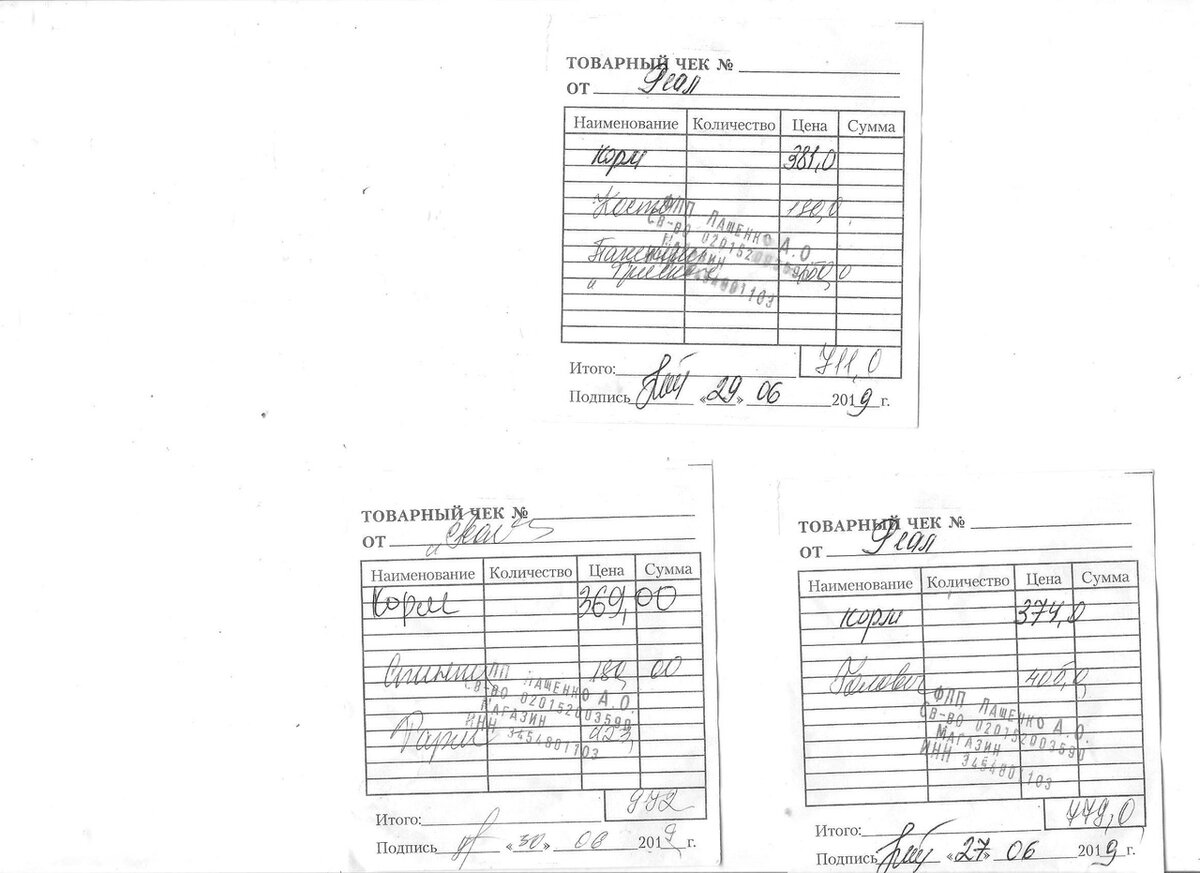 ТОВАРНЫЙ ЧЕК №
ОТ Реал
Наименование Количество Цена Сумма
Корм 381,0
Кости 180,0
150,0
ФЛП ПАЩЕНКО А.О
СВ-ВО 020152003590
МАГАЗИН
3454801103
Итого: 711,0
Подпись «29» 06 2019 г.
ТОВАРНЫЙ ЧЕК №
ОТ „Реал“
Наименование Количество Цена Сумма
Корм 369,00
180 00
423
ФЛП ПАЩЕНКО А.О.
СВ-ВО 020152003590
МАГАЗИН
ИНН 3454801103
Итого: 972
Подпись «30» 06 2019 г.
ТОВАРНЫЙ ЧЕК №
ОТ Реал
Наименование Количество Цена Сумма
Корм 374,0
405,0
ФЛП ПАЩЕНКО А.О.
СВ-ВО 020152003590
МАГАЗИН
ИНН 3454801103
Итого: 779,0
Подпись «27» 06 2019 г.